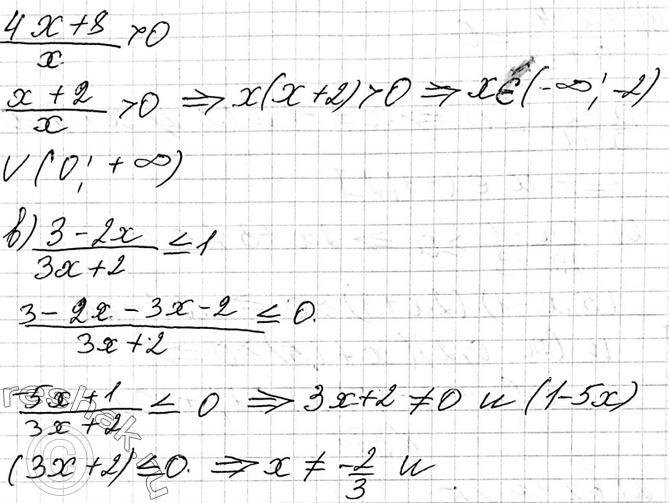 (4x+8)/x >0
(x+2)/x >0 ⇒ x(x+2)>0 ⇒ x∈(-∞; -2)
∪(0; +∞)
в) (3-2x)/(3x+2) ≤1
(3-2x-3x-2)/(3x+2) ≤0.
(-5x+1)/(3x+2) ≤ 0 ⇒ 3x+2≠0 и (1-5x)
(3x+2)≤0. ⇒ x≠ -2/3 и